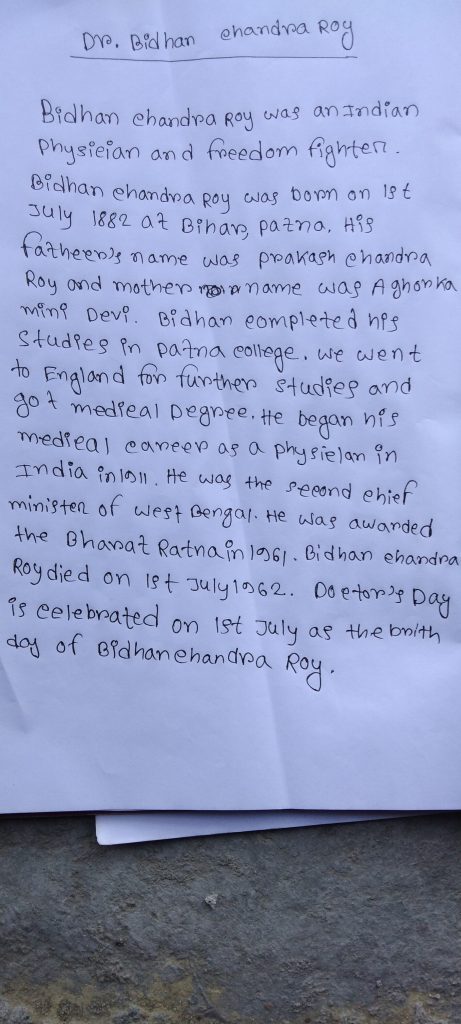 Dr. Bidhan chandra Roy
Bidhan chandra Roy was an Indian
Physician and freedom fighter.
Bidhan chandra Roy was born on 1st
July 1882 at Bihar, patna. His
father's name was prakash chandra
Roy and mother name was Aghorka
mini Devi. Bidhan completed his
Studies in patna college. we went
to England for further studies and
got medical Degree. He began his
medical career as a physician in
India in 1911. He was the second chief
minister of west Bengal. He was awarded
the Bharat Ratna in 1961. Bidhan chandra
Roy died on 1st July 1962. Doctor's Day
is celebrated on 1st July as the brith
day of Bidhan chandra Roy.